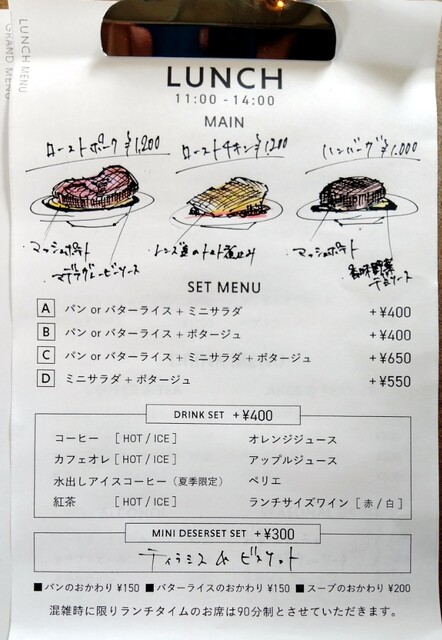 LUNCH MENU
GRAND MENU
LUNCH
11:00 - 14:00
MAIN
ローストポーク ¥1,200
ローストチキン ¥1,200
ハンバーグ ¥1,000
・マッシュポテト
・マデラグレービーソース
・レンズ豆のトマト煮込み
・マッシュポテト
香味野菜
ソース
SET MENU
A パン or バターライス + ミニサラダ +¥400
B パン or バターライス + ポタージュ +¥400
C パン or バターライス + ミニサラダ + ポタージュ +¥650
D ミニサラダ + ポタージュ +¥550
DRINK SET +¥400
コーヒー [ HOT / ICE ] オレンジジュース
カフェオレ [ HOT / ICE ] アップルジュース
水出しアイスコーヒー（夏季限定） ペリエ
紅茶 [ HOT / ICE ] ランチサイズワイン [ 赤 / 白 ]
MINI DESERSET SET +¥300
ティラミス & ビスケット
■ パンのおかわり ¥150 ■ バターライスのおかわり ¥150 ■ スープのおかわり ¥200
混雑時に限りランチタイムのお席は90分制とさせていただきます。